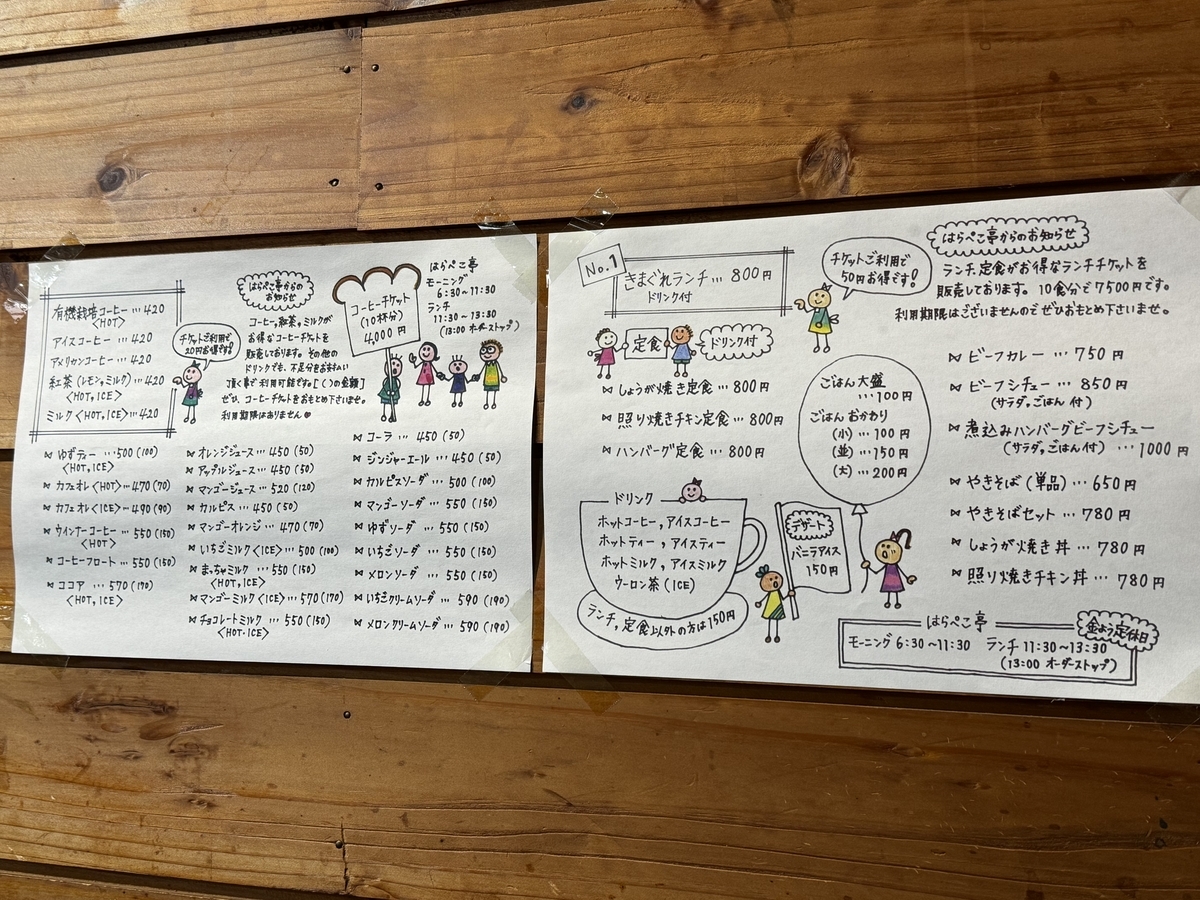 有機栽培コーヒー…420
<HOT>
アイスコーヒー …420
アメリカンコーヒー …420
紅茶(レモン,ミルク)…420
<HOT,ICE>
ミルク<HOT,ICE>…420
チケットご利用で
20円お得です!
はらぺこ亭からの
お知らせ
コーヒー,紅茶,ミルクが
お得なコーヒーチケットを
販売しております。その他の
ドリンクでも、不足分をお支払い
頂く事で利用可能です。[( )の金額]
ぜひ、コーヒーチケットをおもとめ下さいませ。
利用期限はありません♥
コーヒーチケット
(10杯分)
4,000円
はらぺこ亭
モーニング
6:30~11:30
ランチ
11:30~13:30
(13:00 オーダーストップ)
ゆずティー …500(100)
<HOT,ICE>
カフェオレ<HOT>…470(70)
カフェオレ<ICE>…490(90)
ウインナーコーヒー …550(150)
<HOT>
コーヒーフロート …550(150)
ココア …570(170)
<HOT,ICE>
オレンジジュース …450(50)
アップルジュース …450(50)
マンゴージュース …520(120)
カルピス …450(50)
マンゴーオレンジ …470(70)
いちごミルク<ICE>…500(100)
まっちゃミルク …550(150)
<HOT,ICE>
マンゴーミルク<ICE>…570(170)
チョコレートミルク …550(150)
<HOT・ICE>
コーラ …450(50)
ジンジャーエール …450(50)
カルピスソーダ …500(100)
マンゴーソーダ …550(150)
ゆずソーダ …550(150)
いちごソーダ …550(150)
メロンソーダ …550(150)
いちごクリームソーダ …590(190)
メロンクリームソーダ …590(190)
No.1
きまぐれランチ…800円
ドリンク付
チケットご利用で
50円お得です!
はらぺこ亭からのお知らせ
ランチ,定食がお得なランチチケットを
販売しております。10食分で7500円です。
利用期限はございませんのでぜひおもとめ下さいませ。
定食
ドリンク付
しょうが焼き定食 …800円
照り焼きチキン定食 …800円
ハンバーグ定食 …800円
ごはん大盛
…100円
ごはんおかわり
(小)…100円
(並)…150円
(大)…200円
ビーフカレー …750円
ビーフシチュー …850円
(サラダ,ごはん付)
煮込みハンバーグビーフシチュー
(サラダ,ごはん付)…1000円
やきそば(単品)…650円
やきそばセット …780円
しょうが焼き丼 …780円
照り焼きチキン丼 …780円
ドリンク
ホットコーヒー,アイスコーヒー
ホットティー,アイスティー
ホットミルク,アイスミルク
ウーロン茶(ICE)
ランチ,定食以外の方は150円
デザート
バニラアイス
150円
はらぺこ亭
金よう定休日
モーニング 6:30~11:30 ランチ 11:30~13:30
(13:00 オーダーストップ)